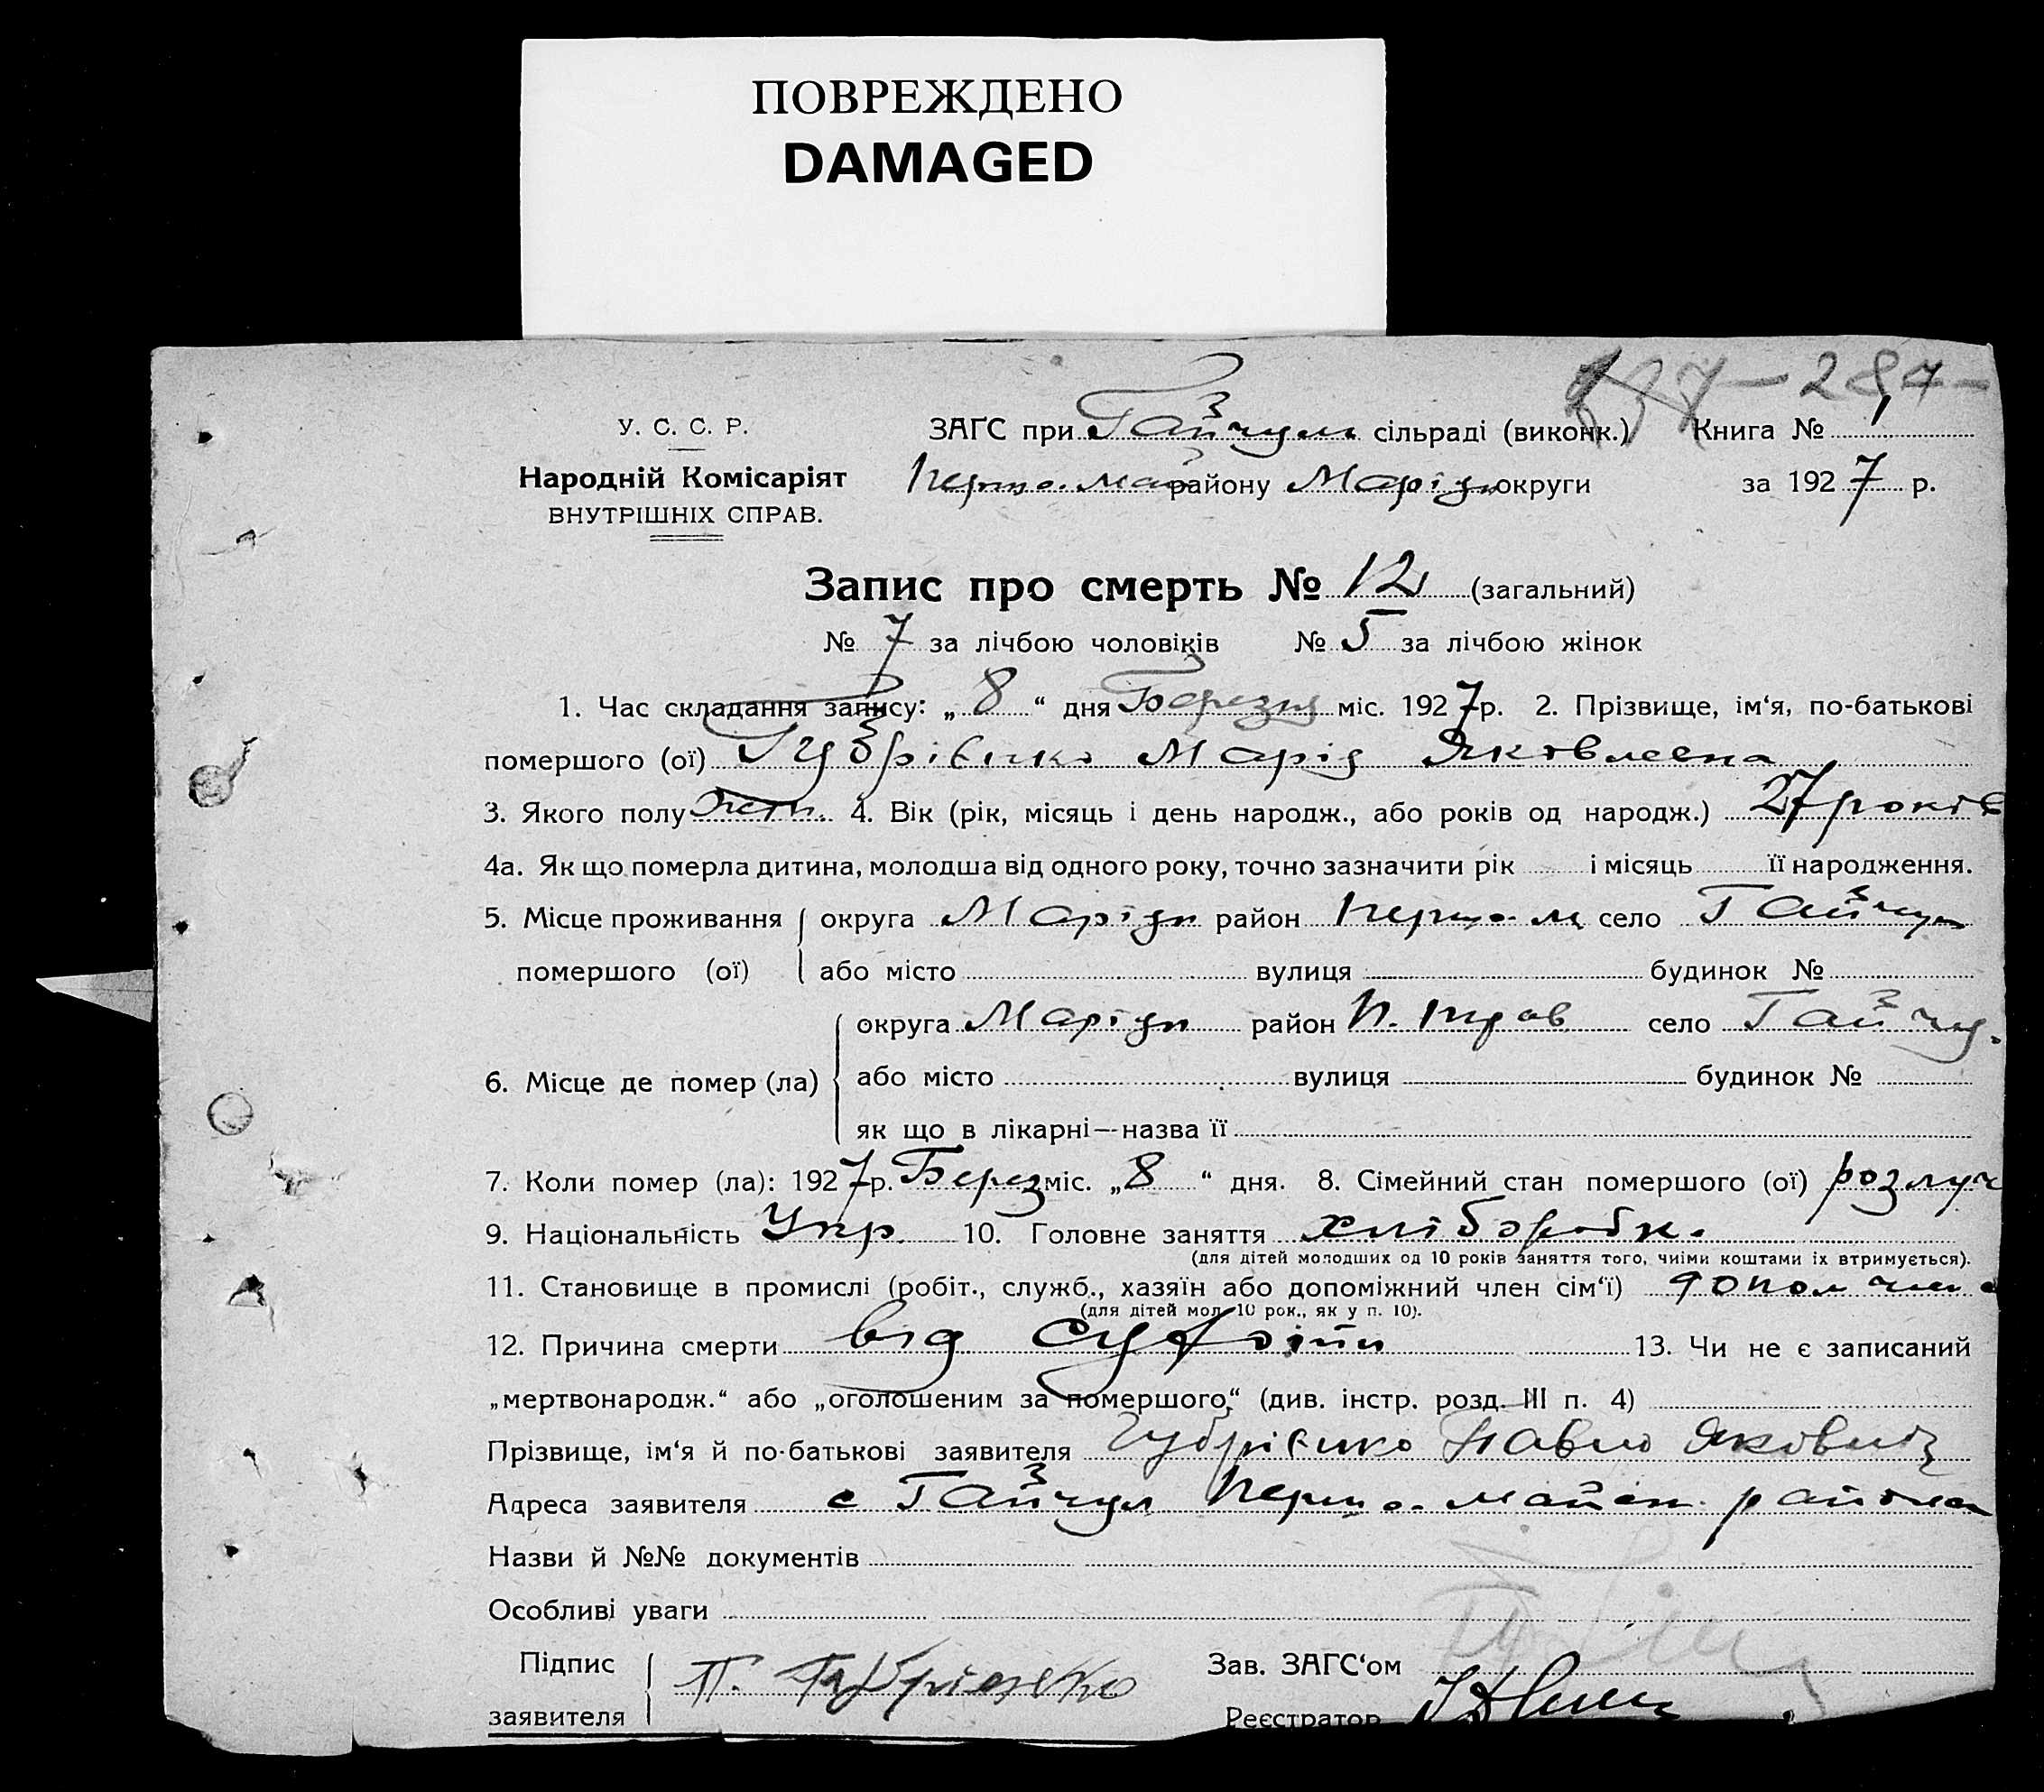 ПОВРЕЖДЕНО
DAMAGED
287
У. С. С. Р.
Народній Комісаріят
ВНУТРІШНІХ СПРАВ.
ЗАГС при Гайчул сільраді (виконк.) Книга № 1
Першо-май району Маріуп округи за 1927 р.
Запис про смерть № 12 (загальний)
№ 7 за лічбою чоловіків № 5 за лічбою жінок
1. Час складання запису: „ 8 “ дня Березня міс. 1927 р. 2. Прізвище, ім‘я, по-батькові
помершого (ої) Губрієнко Марія Яковлевна
3. Якого полу жін. 4. Вік (рік, місяць і день народж., або років од народж.) 27 років
4а. Як що померла дитина, молодша від одного року, точно зазначити рік і місяць її народження.
5. Місце проживання округа Маріуп район Першо-м село Гайчул
помершого (ої) або місто вулиця будинок №
округа Маріуп район село Гайчул
6. Місце де помер (ла) або місто вулиця будинок №
як що в лікарні—назва її
7. Коли помер (ла): 1927 р. Берез міс. „ 8 “ дня. 8. Сімейний стан помершого (ої) розлуч
9. Національність Укр. 10. Головне заняття хлібороб
(для дітей молодших од 10 років заняття того, чиїми коштами їх втримується).
11. Становище в промислі (робіт., служб., хазяїн або допоміжний член сім‘ї) допом член
(для дітей мол. 10 рок., як у п. 10).
12. Причина смерти від 13. Чи не є записаний
„мертвонародж.“ або „оголошеним за помершого“ (див. інстр. розд. III п. 4)
Прізвище, ім‘я й по-батькові заявителя Губрієнко Павло Якович
Адреса заявителя с Гайчул Першо-майск. района
Назви й №№ документів
Особливі уваги
Підпис
заявителя П. Губрієнко
Зав. ЗАГС‘ом
Реєстратор